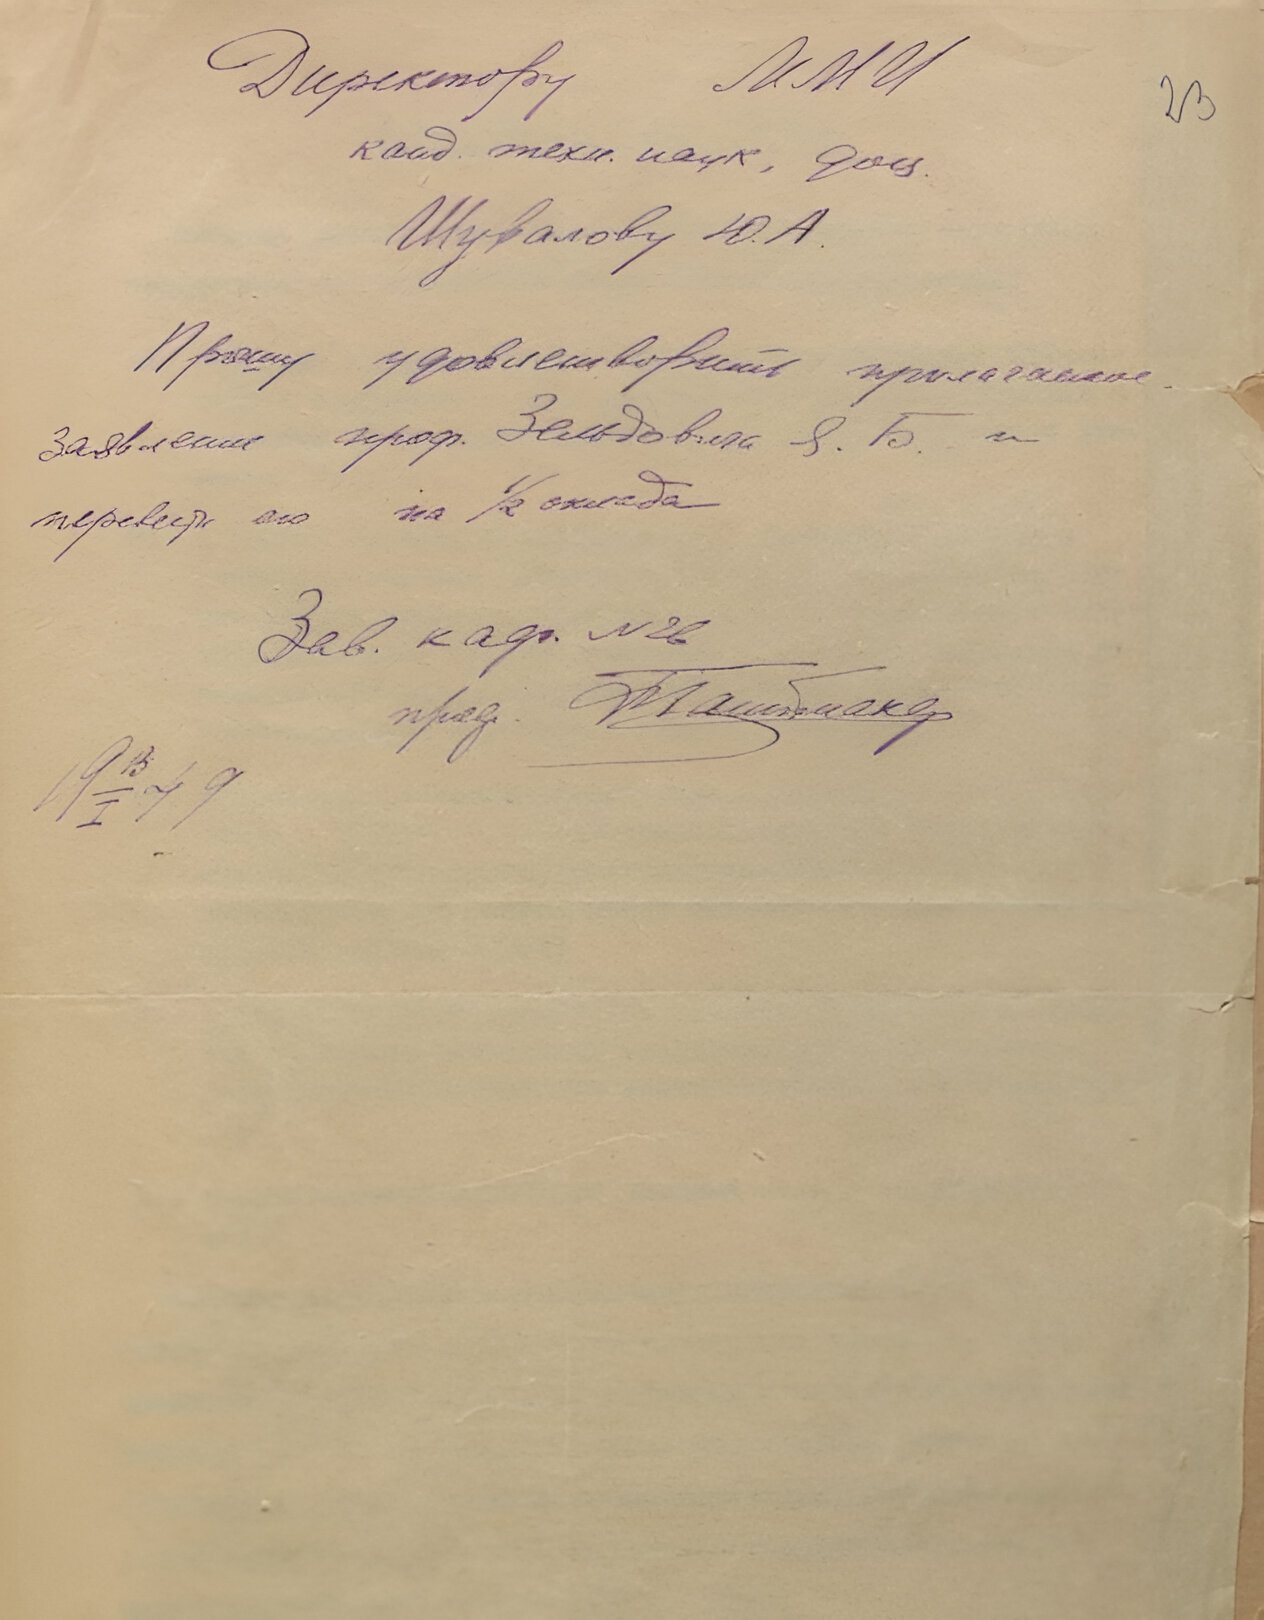 23
Директору ММИ
канд. техн. наук, доц.
Шувалову Ю.А.
Прошу удовлетворить прилагаемое
заявление проф. Зельдовича Я. Б. и
перевести его на 1/2 оклада
Зав. каф. №26
проф.
19 13/I 49